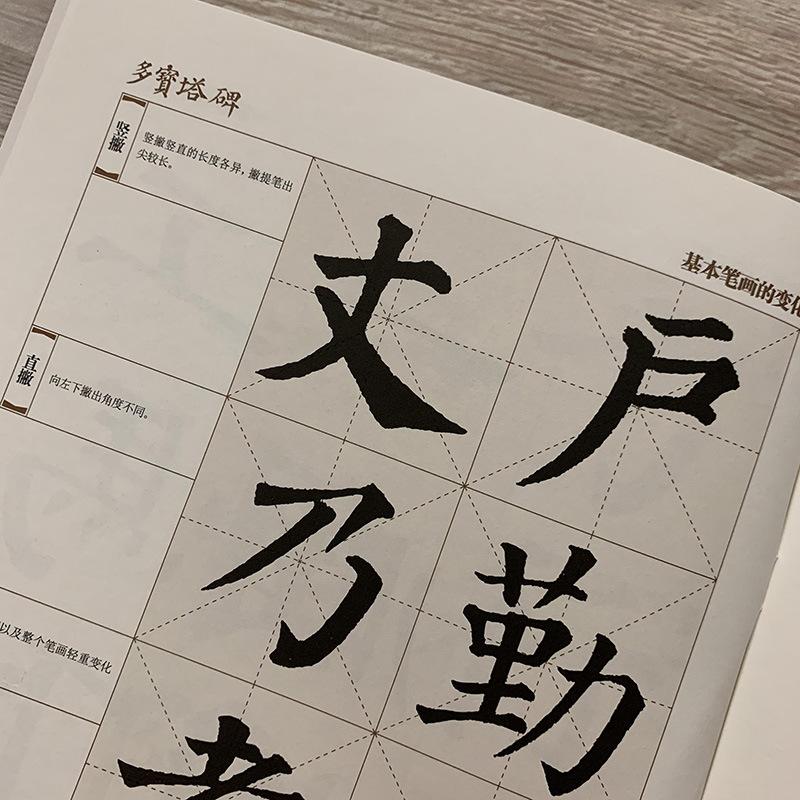 多寶塔碑
基本笔画的变化
竖撇
竖撇竖直的长度各异，撇提笔出
尖较长。
丈 戶
直撇
向左下撇出角度不同。
乃 勤
以及整个笔画轻重变化